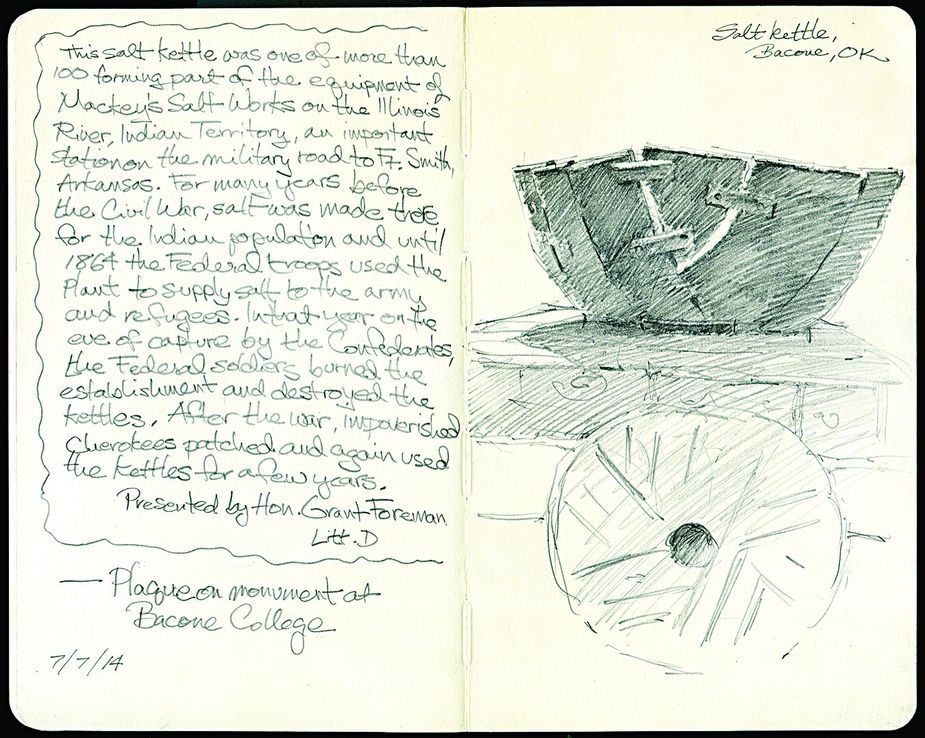 This salt kettle was one of more than
100 forming part of the equipment of
Mackey's Salt Works on the Illinois
River, Indian Territory, an important
station on the military road to Ft. Smith,
Arkansas. For many years before
the Civil War, salt was made there
for the Indian population and until
1864 the Federal troops used the
Plant to supply salt to the army
and refugees. In that year on the
eve of capture by the Confederates,
the Federal soldiers burned the
establishment and destroyed the
kettles. After the war, impoverished
Cherokees patched and again used
the kettles for a few years.
Presented by Hon. Grant Foreman
Litt. D
— Plaque on monument at
Bacone College
7/7/14
Salt kettle,
Bacone, OK